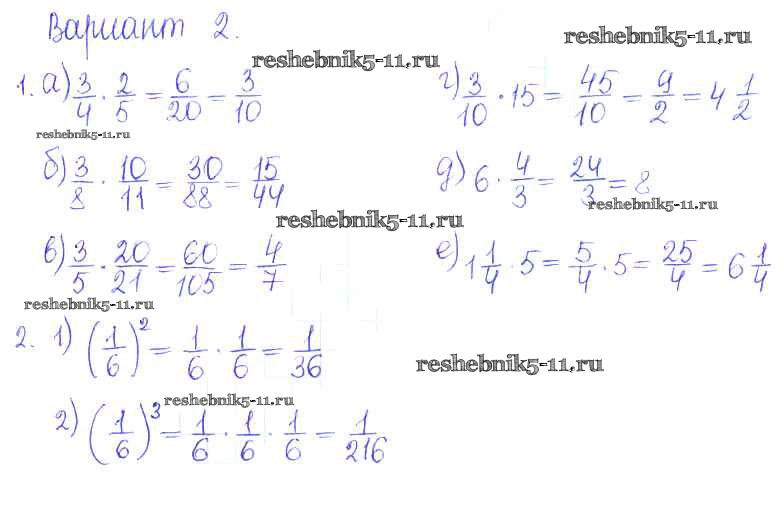 Вариант 2.
reshebnik5-11.ru
reshebnik5-11.ru
1. а) 3/4 · 2/5 = 6/20 = 3/10
г) 3/10 · 15 = 45/10 = 9/2 = 4 1/2
reshebnik5-11.ru
б) 3/8 · 10/11 = 30/88 = 15/44
д) 6 · 4/3 = 24/3 = 8
reshebnik5-11.ru
reshebnik5-11.ru
в) 3/5 · 20/21 = 60/105 = 4/7
е) 1 1/4 · 5 = 5/4 · 5 = 25/4 = 6 1/4
reshebnik5-11.ru
2. 1) (1/6)² = 1/6 · 1/6 = 1/36
reshebnik5-11.ru
reshebnik5-11.ru
2) (1/6)³ = 1/6 · 1/6 · 1/6 = 1/216